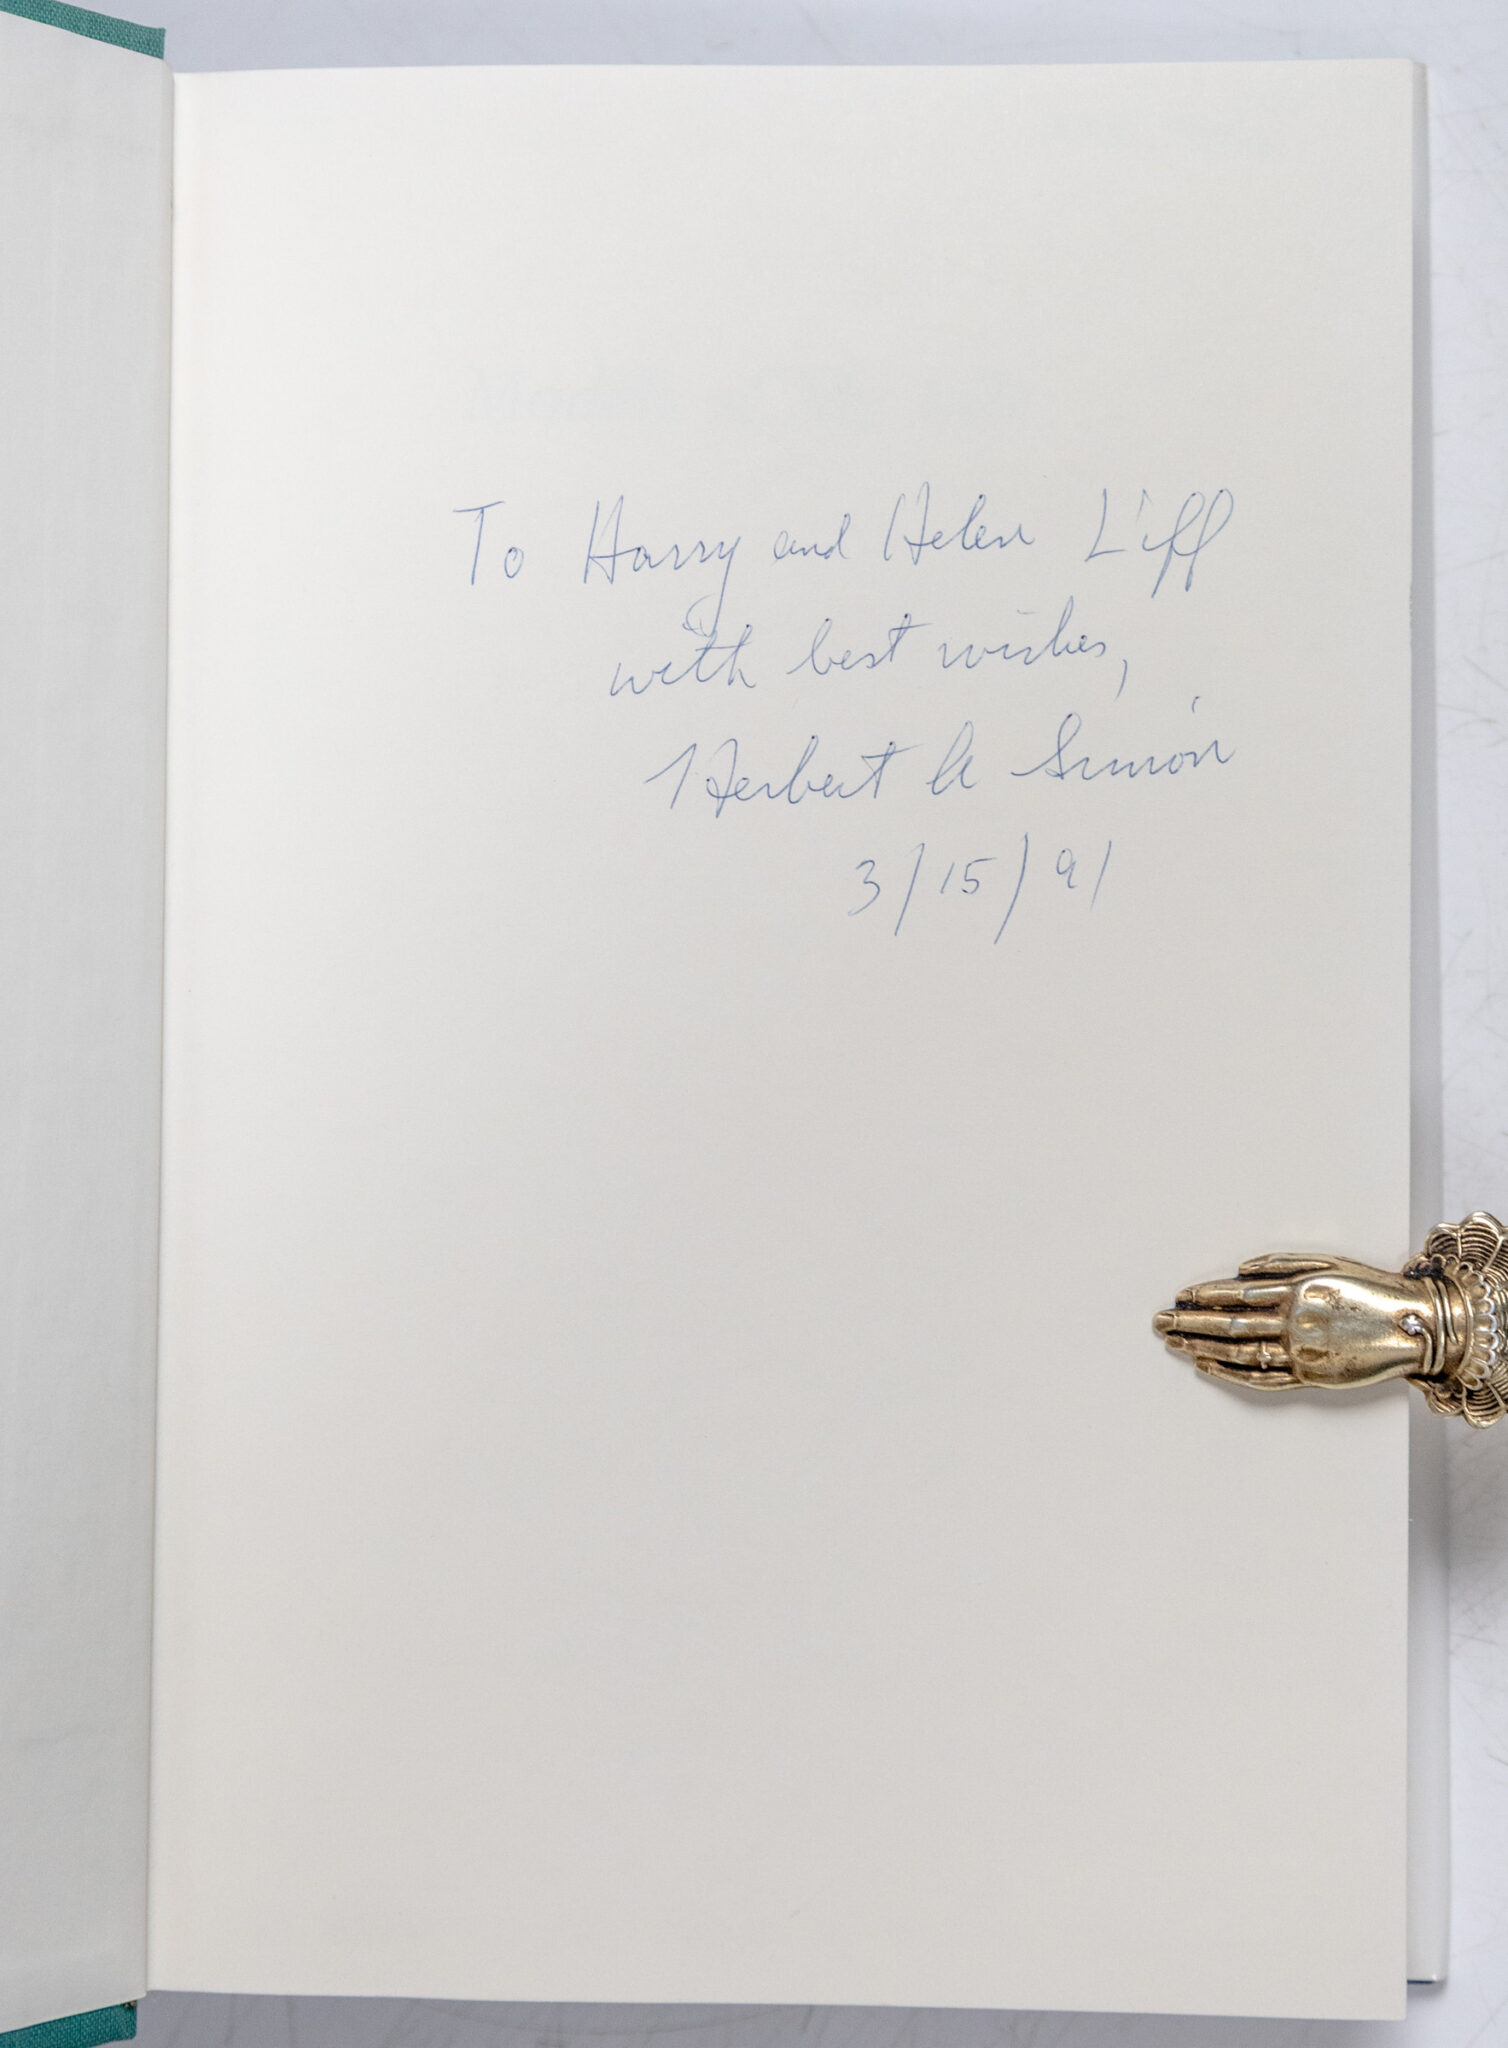 To Harry and Helen Liff
with best wishes,
Herbert A Simon
3/15/91